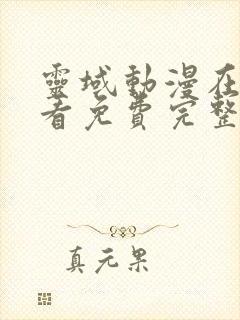 靈域動漫在
看免費完整
真元果